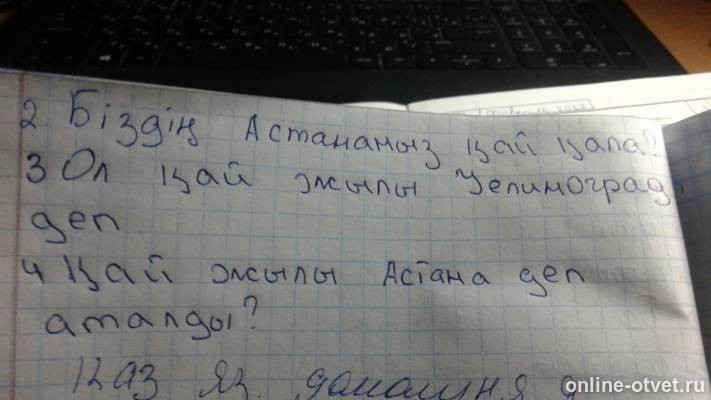 2. Біздің Астанамыз қай қала?
3 Ол қай жылы Целиноград
деп
4 Қай жылы Астана деп
аталды?
Каз яз. домашня
online-otvet.ru